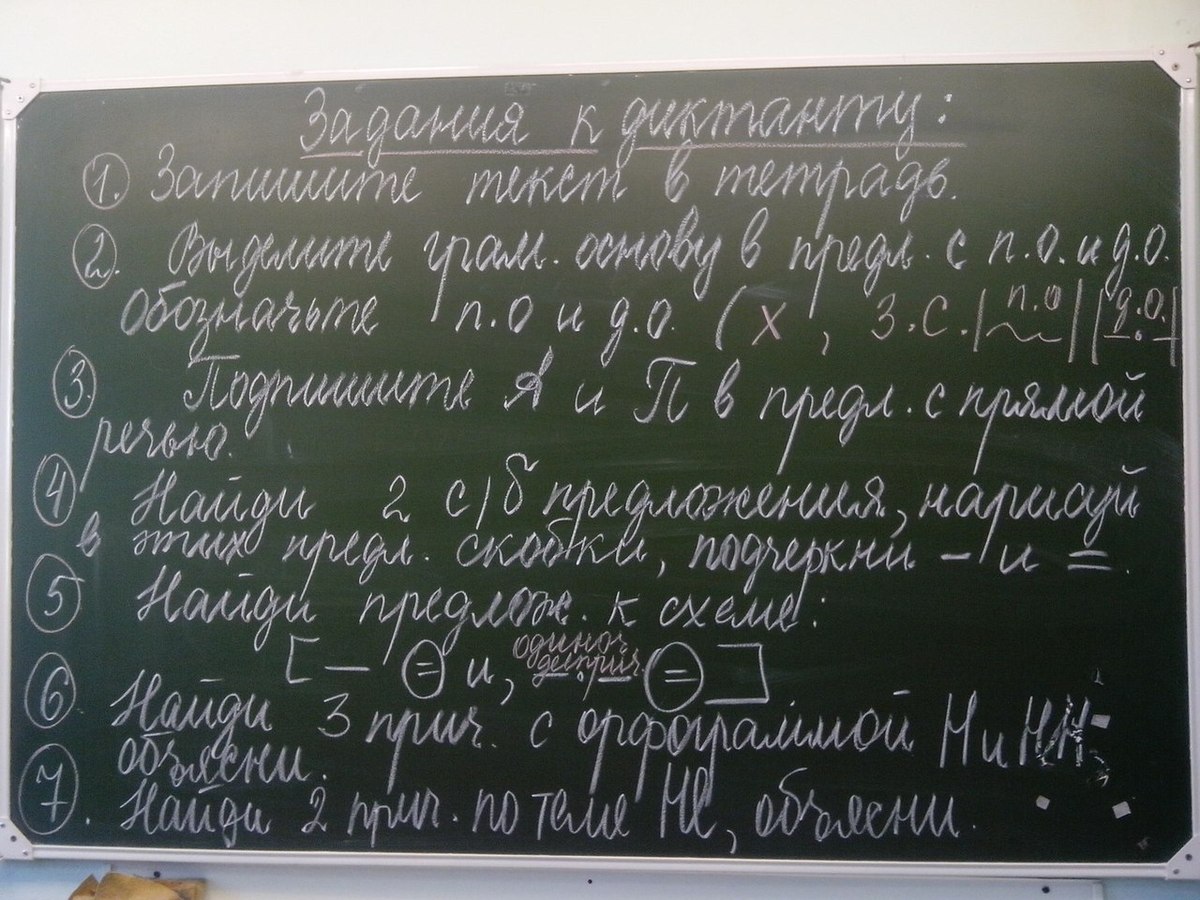 Задания к диктанту:
1. Запишите текст в тетрадь.
2. Выделите грам. основу в предл. с п.о. и д.о.
Обозначьте п.о и д.о. (х, з.с. |п.о| |д.о.|
3. Подпишите А и П в предл. с прямой
речью.
4 Найди 2 с/б предложения, нарисуй
в этих предл. скобки, подчеркни – и =.
5 Найди предлож. к схеме:
[ – = и, одиноч. дееприч. = ]
6 Найди 3 прич. с орфограммой Н и НН
объясни.
7. Найди 2 прич. по теме НЕ, объясни.